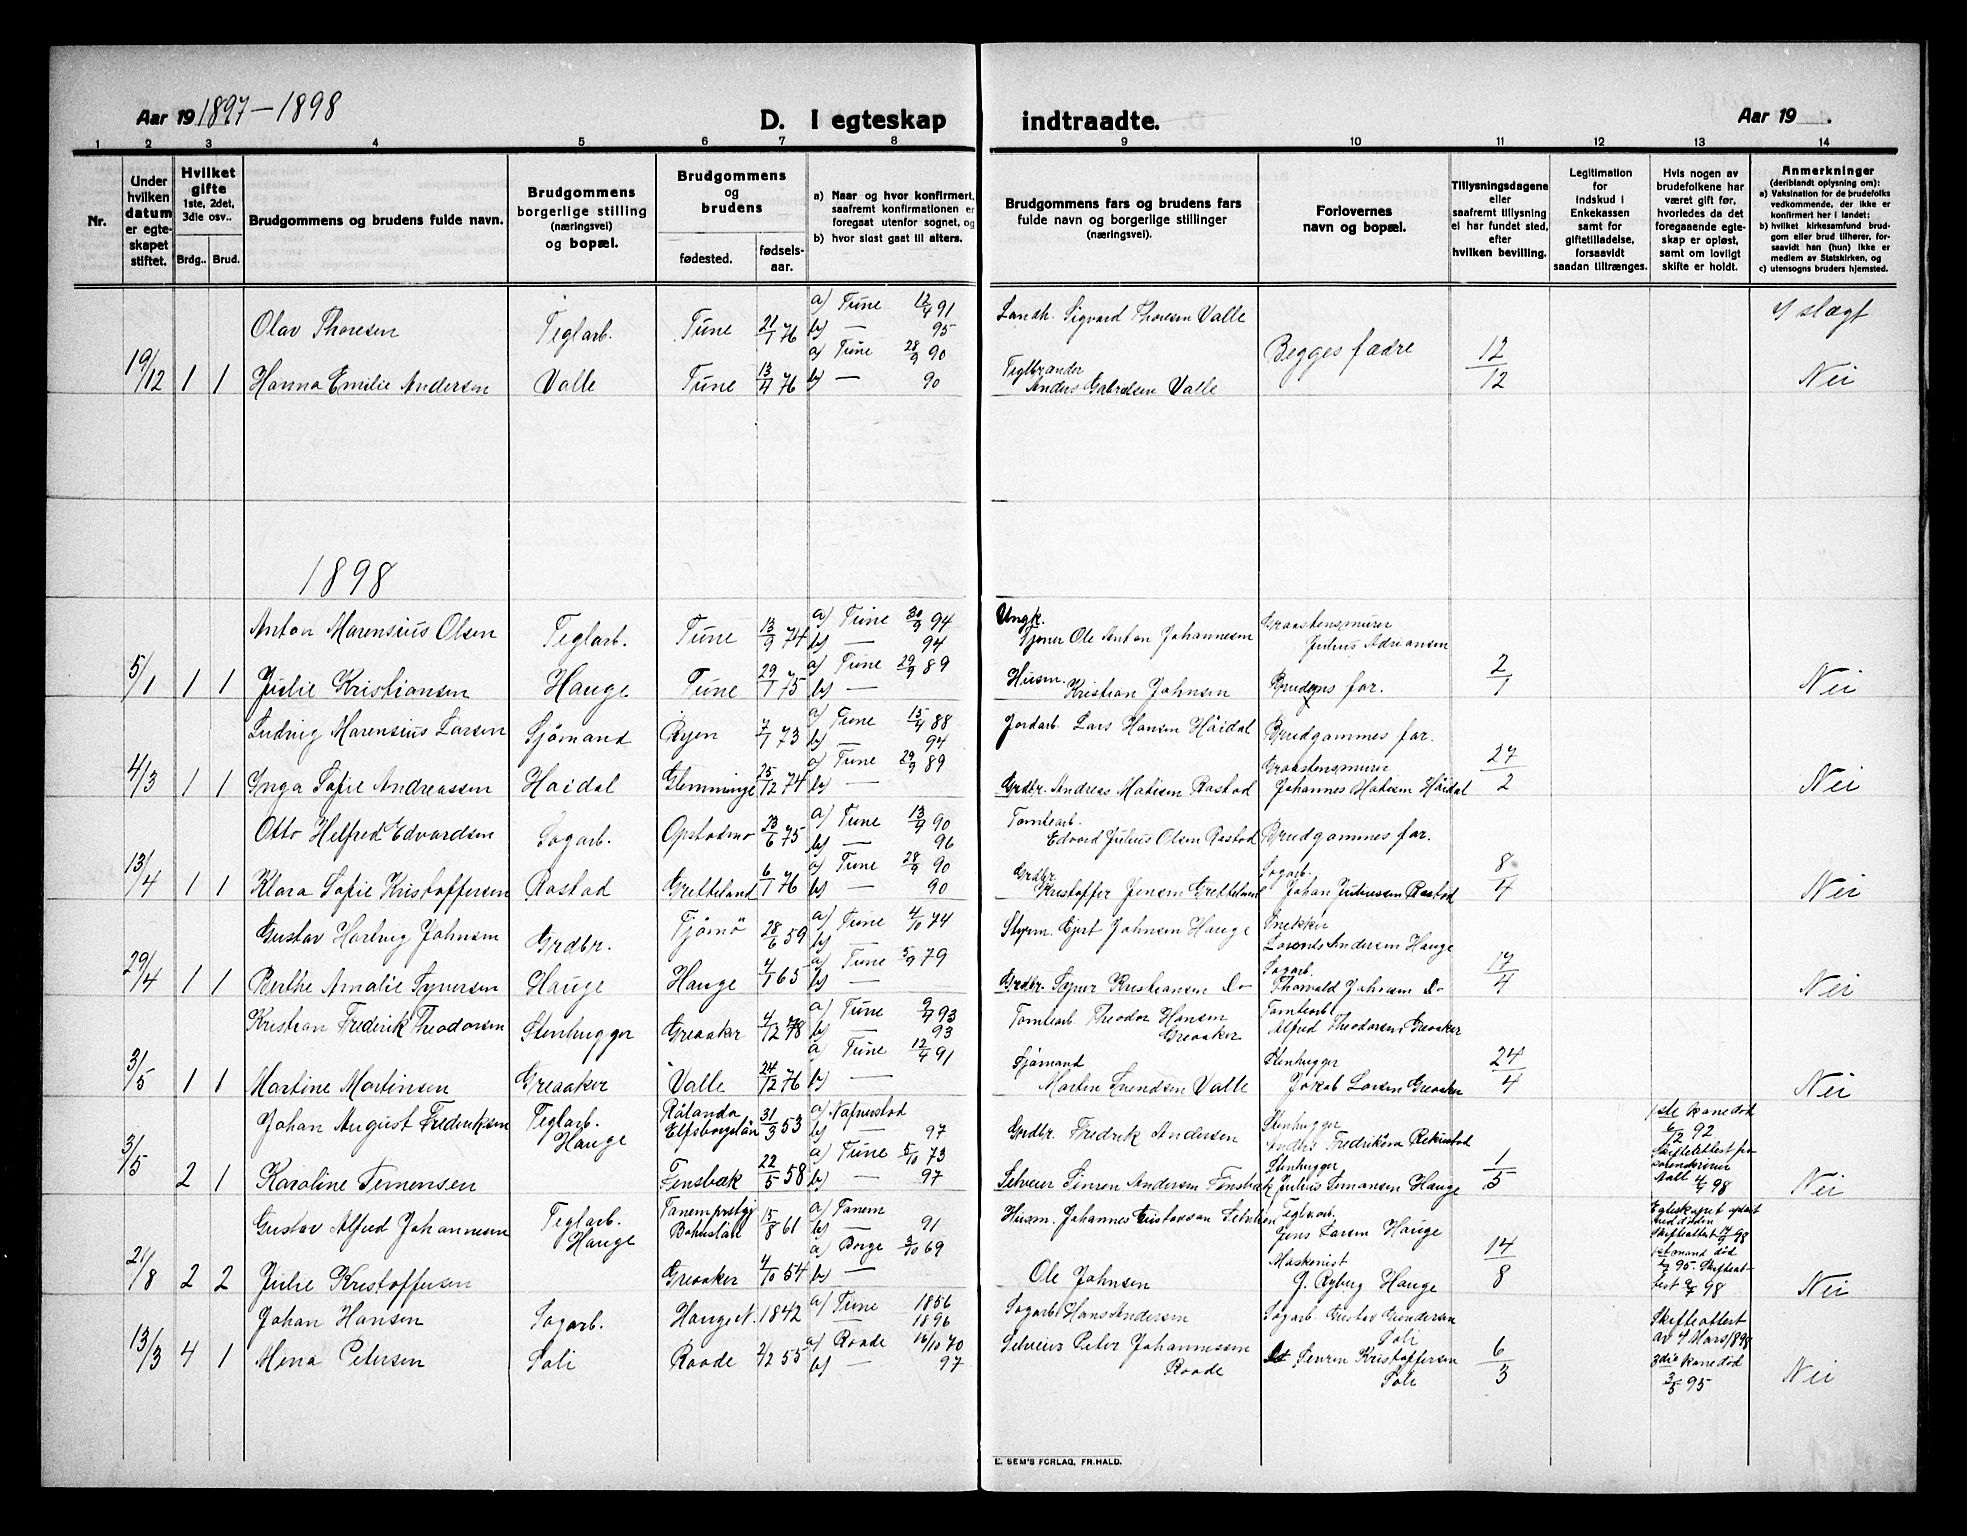 Aar 19 1897–1898
D. I egteskap indtraadte.
Aar 19 .
1 2 3 4 5 6 7 8 9 10 11 12 13 14
Nr.
Under hvilken datum er egteskapet stiftet.
Hvilket gifte 1ste, 2det, 3die osv..
Brdg.. Brud.
Brudgommens og brudens fulde navn.
Brudgommens borgerlige stilling (næringsvei) og bopæl.
Brudgommens og brudens
fødested.
fødselsaar.
a) Naar og hvor konfirmert, saafremt konfirmationen er foregaat utenfor sognet, og
b) hvor sidst gaat til alters.
Brudgommens fars og brudens fars fulde navn og borgerlige stillinger (næringsvei).
Forlovernes navn og bopæl.
Tillysningsdagene eller saafremt tillysning ei har fundet sted, efter hvilken bevilling.
Legitimation for indskud i Enkekassen samt for giftetilladelse, forsaavidt saadan tiltrænges.
Hvis nogen av brudefolkene har været gift før, hvorledes da det foregaaende egteskap er opløst, samt om lovligt skifte er holdt.
Anmerkninger (deriblandt oplysning om): a) Vaksination for de brudefolks vedkommende, der ikke er konfirmert her i landet; b) hvilket kirkesamfund brudgom eller brud tilhører, forsaavidt han (hun) ikke er medlem av Statskirken, og c) utensogns bruders hjemsted.
Olav Thoresen Teglarb. Tune 21/1 76 a) Tune 12/4 91 b) — 95 Landh. Sigvard Thoresen Valle Begges fædre I slægt
19/12 1 1 Hanna Emilie Andersen Valle Tune 13/4 76 a) Tune 28/9 90 b) — 90 Teglbrænder Anders Gabrielsen Valle 12/12 Nei
1898
Anton Marensius Olsen Teglarb. Tune 13/9 74 a) Tune 30/9 94 b) — 94 Ungk. Tjener Ole Anton Johannesen Graastensmurer Julius Adriansen
5/1 1 1 Julie Kristiansen Hauge Tune 29/1 75 a) Tune 29/9 89 b) — Husm. Kristian Johnsen Brudens far. 2/1 Nei
Ludvig Marensius Larsen Sjømand Ryen 7/1 73 a) Tune 15/4 88 b) — 94 Jordarb. Lars Hansen Höidal Brudgommes far.
4/3 1 1 Inga Sofie Andreassen Haidal Glemminge 25/12 74 a) Tune 29/9 89 b) — Grdbr. Andreas Matisen Rostad Graastensmurer Johannes Matisen Höidal 27/2 Nei
Otto Helfred Edvardsen Sagarb. Opstadmo 23/6 75 a) Tune 13/4 90 b) — 96 Tomtearb. Edvard Julius Olsen Rostad Brudgommes far.
13/4 1 1 Klara Sofie Kristoffersen Rostad Gretteland 6/1 76 a) Tune 28/9 90 b) — 90 Grdbr Kristoffer Jensen Gretteland Sagarb. Johan Juliussen Rostad 8/4 Nei
Gustav Hartvig Johnsen Grdbr. Tjømø 28/6 59 a) Tune 4/10 74 b) Styrm. Gjert Johnsen Hauge Snekker Lorents Andersen Hauge
29/4 1 1 Berthe Amalie Syversen Hauge Hauge 4/1 65 a) Tune 5/9 79 b) — Grdbr. Syver Kristiansen Do Sagarb. Thorvald Johnsen Do 17/4 Nei
Kristian Frederik Theodorsen Stenhugger Greaaker 4/12 78 a) Tune 9/4 93 b) — 93 Tomtearb Theodor Hansen Greaaker Tomtearb Alfred Theodorsen Greaaker
3/5 1 1 Martine Martinsen Greaaker Valle 24/12 76 a) Tune 12/4 91 b) — Sjømand Martin Svendsen Valle Stenhugger Jakob Larsen Greaaker 24/4 Nei
Johan August Frederiksen Teglarb. Hauge Rålanda Elfsborgslän 31/3 53 a) b) — 97 Grdbr. Fredrik Andersen Stenhugger Anders Fredriksen 1ste kone död 6/12 92
3/5 2 1 Karoline Simensen 22/5 58 a) Tune 5/10 73 b) — 97 Selveier Simen Andersen Stenhugger Julius Simonsen Hauge 1/5 Aall 4/4 98 Nei
Gustav Alfred Johannesen Teglarb. Hauge Tanem Bohuslän 15/8 61 a) Tanem b) — 91 Husm. Johannes Gustavsen Teglarb. Jens Larsen Hauge Egteskapet
21/8 2 2 Julie Kristoffersen Greaaker 4/10 54 a) Borge 3/10 69 b) — Ole Johnsen Maskenist J. Ryberg Hauge 14/8 1st mand död Nei
Johan Hansen Sagarb. Hauge N. 1842 a) Tune 1856 — 1896 Sagarb. Hans Andersen Sagarb. Gustav Gundersen Soli Skifteattest av 4 Mars/1898
13/3 4 1 Mena Petersen Soli Raade 2/2 55 a) Raade 16/10 70 b) — 97 Selveier Peter Johannessen Raade Severin Kristoffersen Soli 6/3 3die kone död 3/5 95 Nei
E. SEM'S FORLAG, FR.HALD.